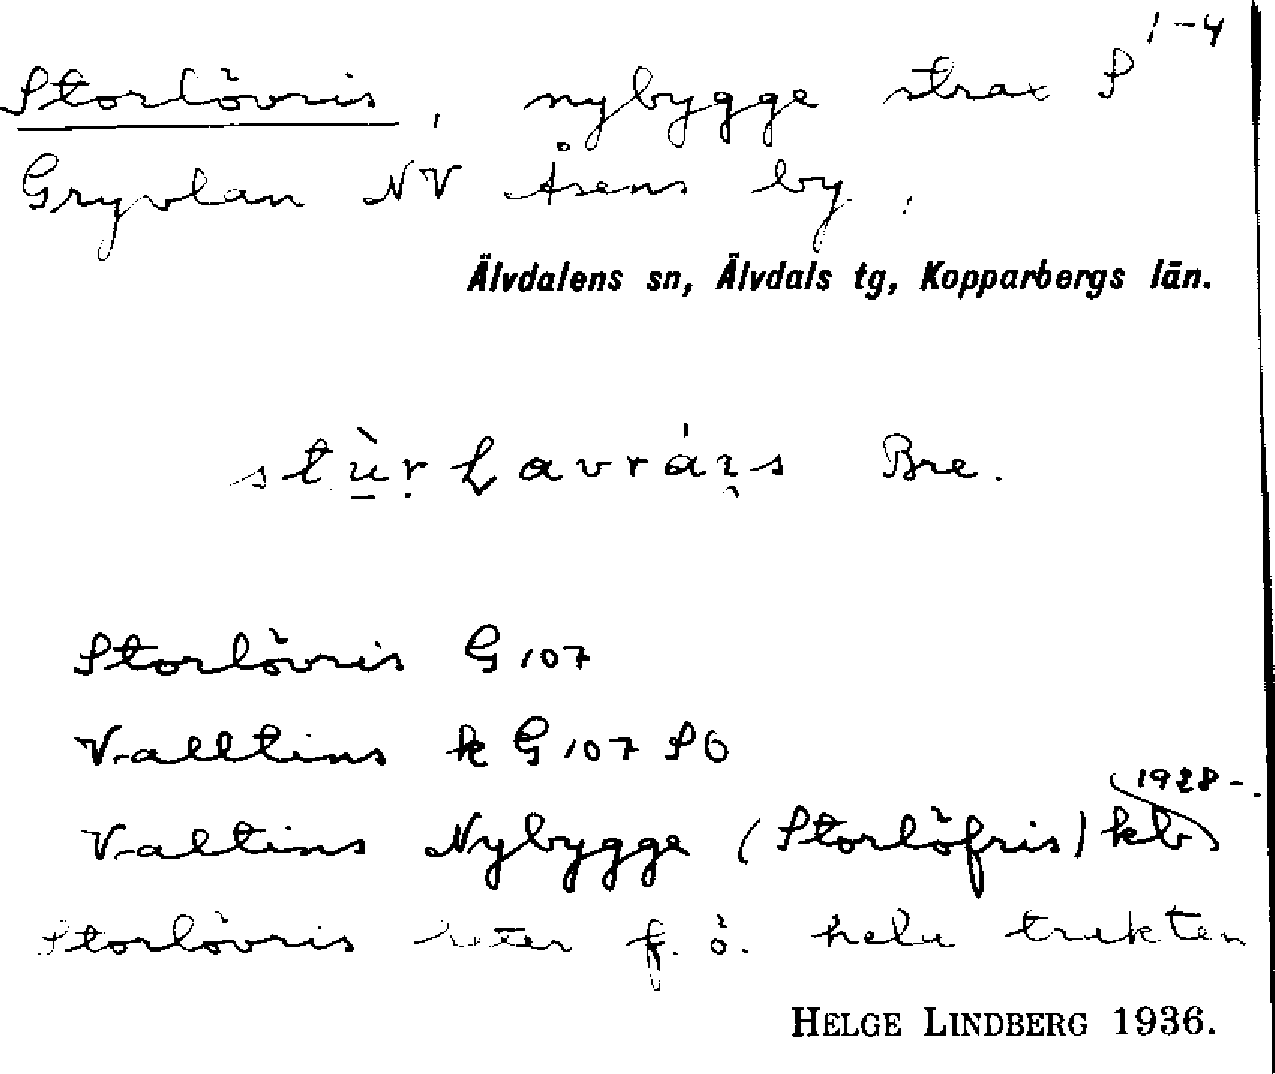 1-4
Storlövris, nybygge strax S
Gryvlan NV Åsens by.
Älvdalens sn, Älvdals tg, Kopparbergs län.
Bre.
Storlövris G 107
Valltins k G 107 SÖ
1928-
Valtins Nybygge (Storlöfris) kb
Storlövris heter f. ö. hela trakten
HELGE LINDBERG 1936.